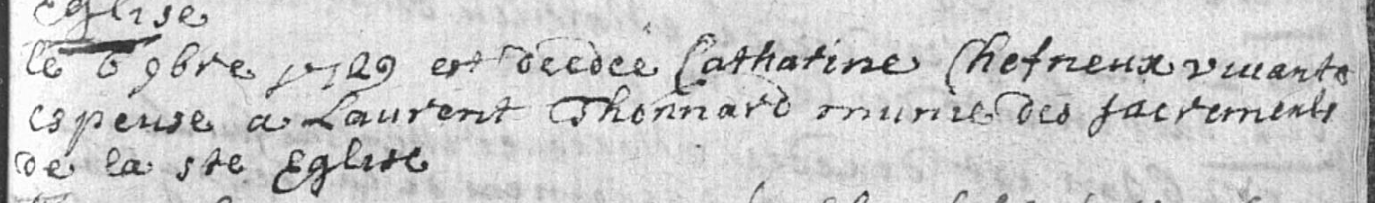 Eglise
le 6 9bre 1729 est decedee Catharine Chefneux vivante
espeuse a Laurent Thonnard munie des sacrements
de la ste Eglise